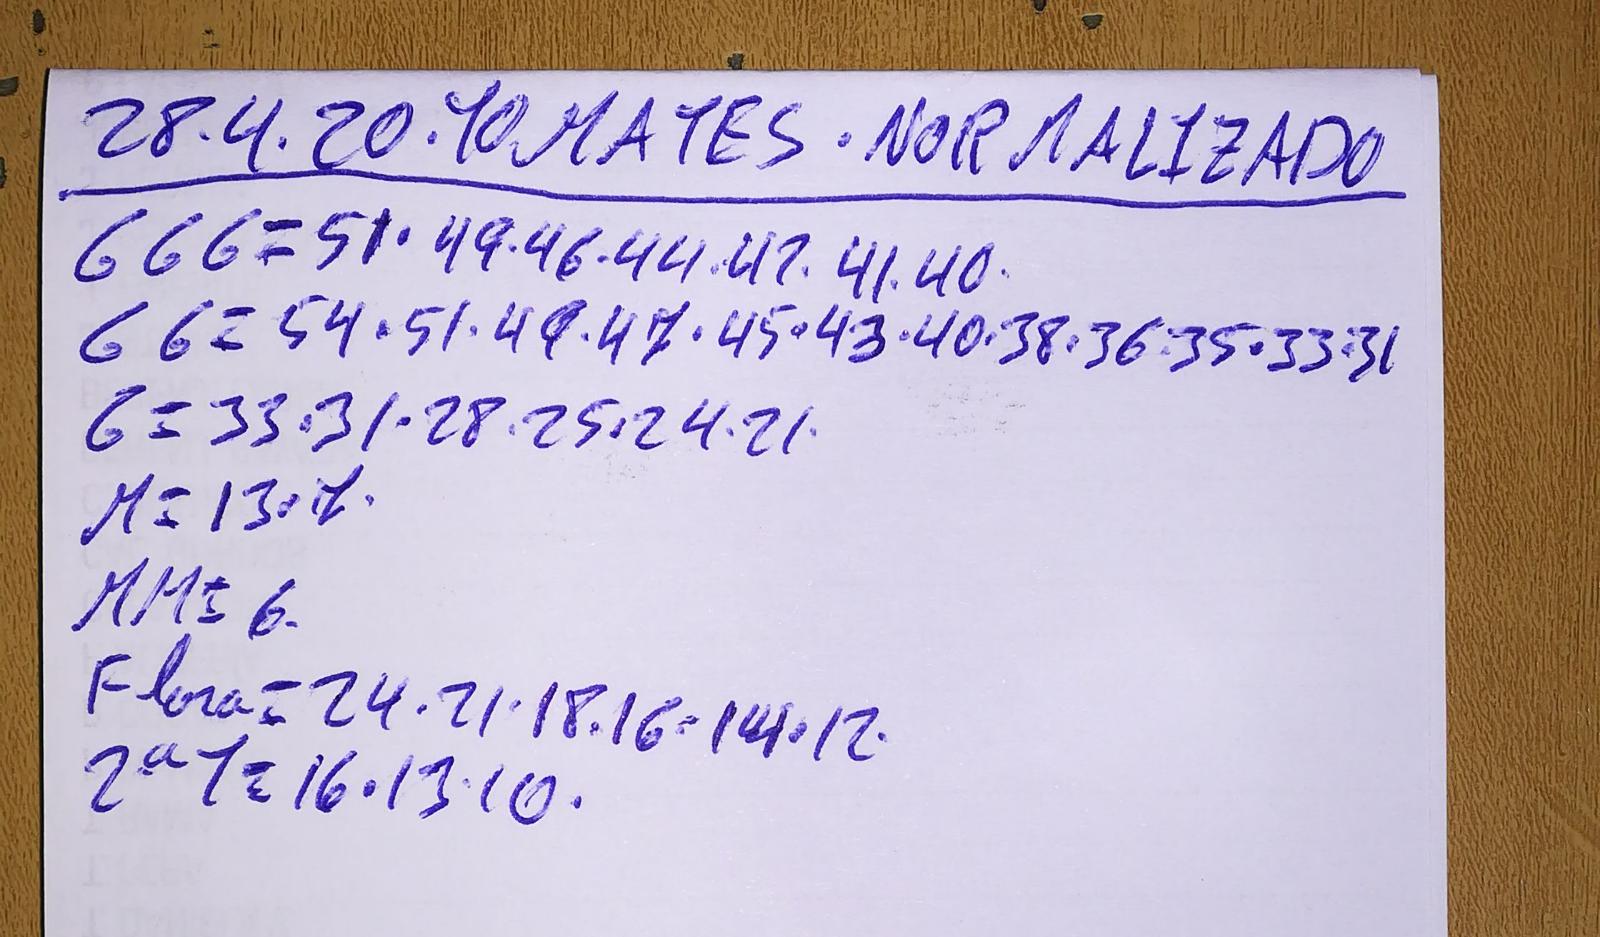 28.4.20.TOMATES.NORMALIZADO
666=51.49.46.44.42.41.40.
66=54.51.49.47.45.43.40.38.36.35.33.31
6=33.31.28.25.24.21.
M=13.7.
MM=6.
Flora=24.21.18.16.14.12.
2ªT=16.13.10.